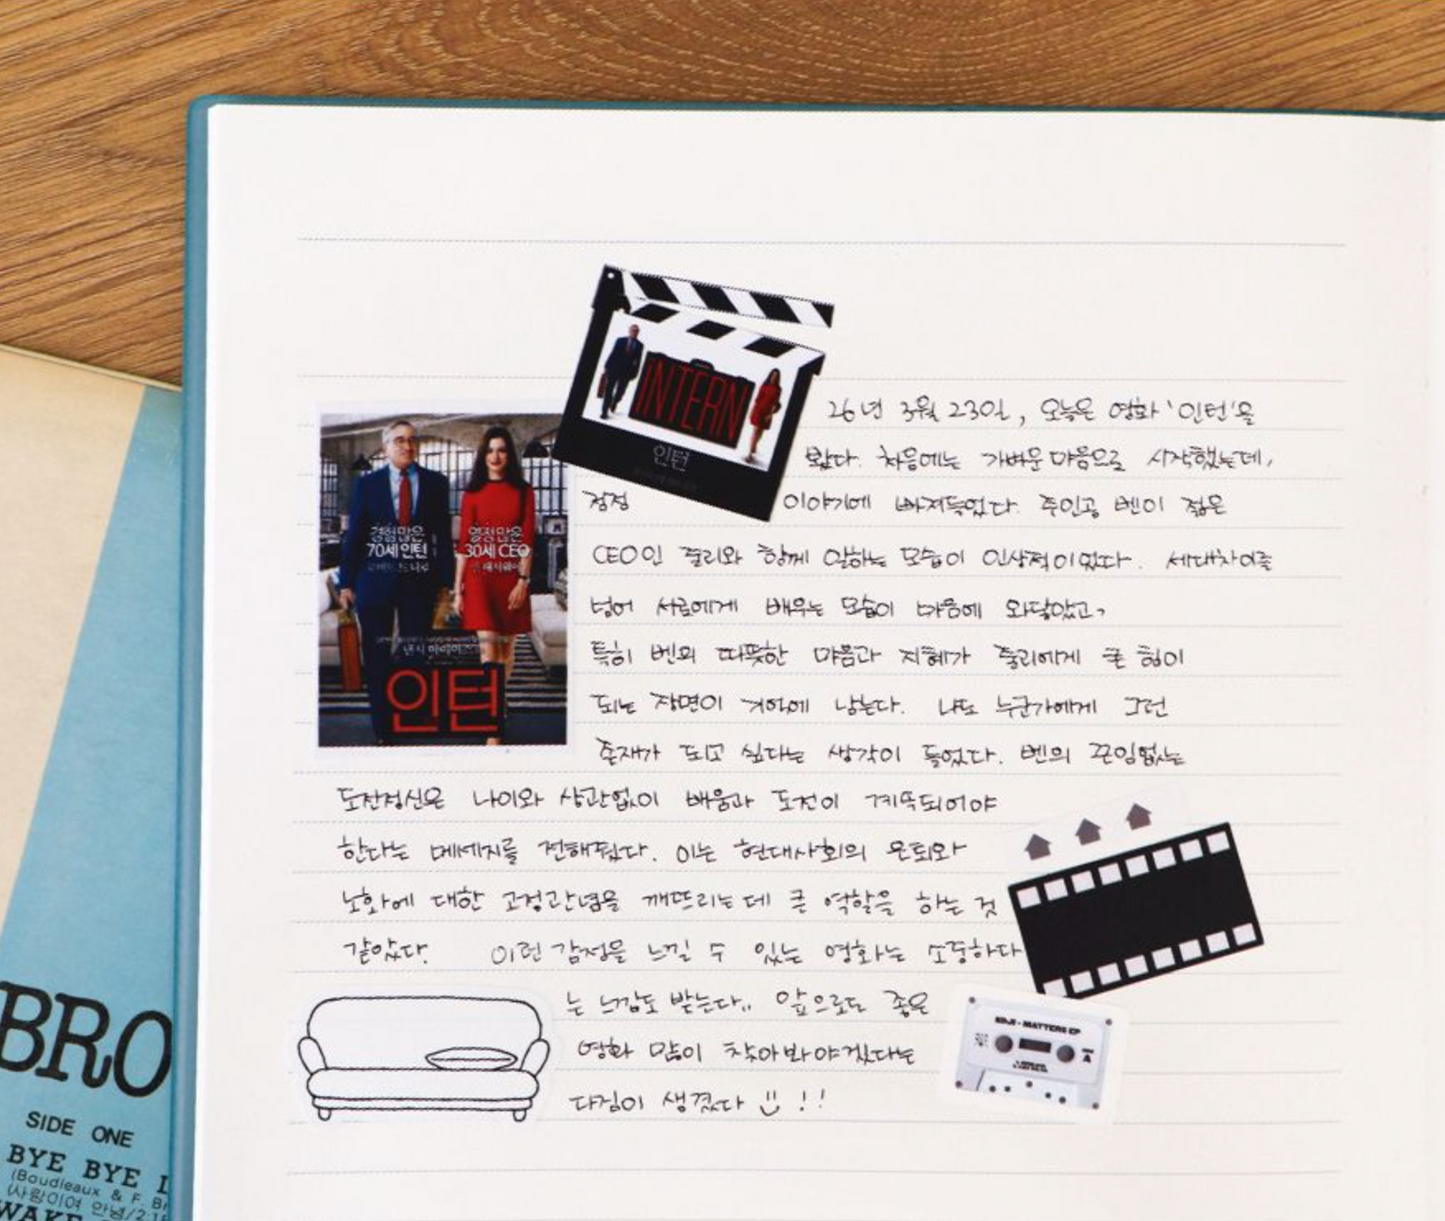 INTERN
인턴
26년 3월 23일, 오늘은 영화 '인턴'을
봤다. 처음에는 가벼운 마음으로 시작했는데,
점점 이야기에 빠져들었다. 주인공 벤이 젊은
CEO인 줄리와 함께 일하는 모습이 인상적이었다. 세대차이를
넘어 서로에게 배우는 모습이 마음에 와닿았고,
특히 벤의 따뜻한 마음과 지혜가 줄리에게 큰 힘이
되는 장면이 기억에 남는다. 나도 누군가에게 그런
존재가 되고 싶다는 생각이 들었다. 벤의 끈임없는
도전정신은 나이와 상관없이 배움과 도전이 계속되어야
한다는 메세지를 전해줬다. 이는 현대사회의 은퇴와
노화에 대한 고정관념을 깨뜨리는데 큰 역할을 하는 것
같았다. 이런 감정을 느낄 수 있는 영화는 소중하다
는 느낌도 받는다.. 앞으로도 좋은
영화 많이 찾아봐야겠다는
다짐이 생겼다 !!
경험많은
70세 인턴
열정많은
30세 CEO
인턴
MATTERS EP
A
BRO
SIDE ONE
BYE BYE L
(Boudleaux & F. Br
(사랑이여 안녕/2:1
WAKE